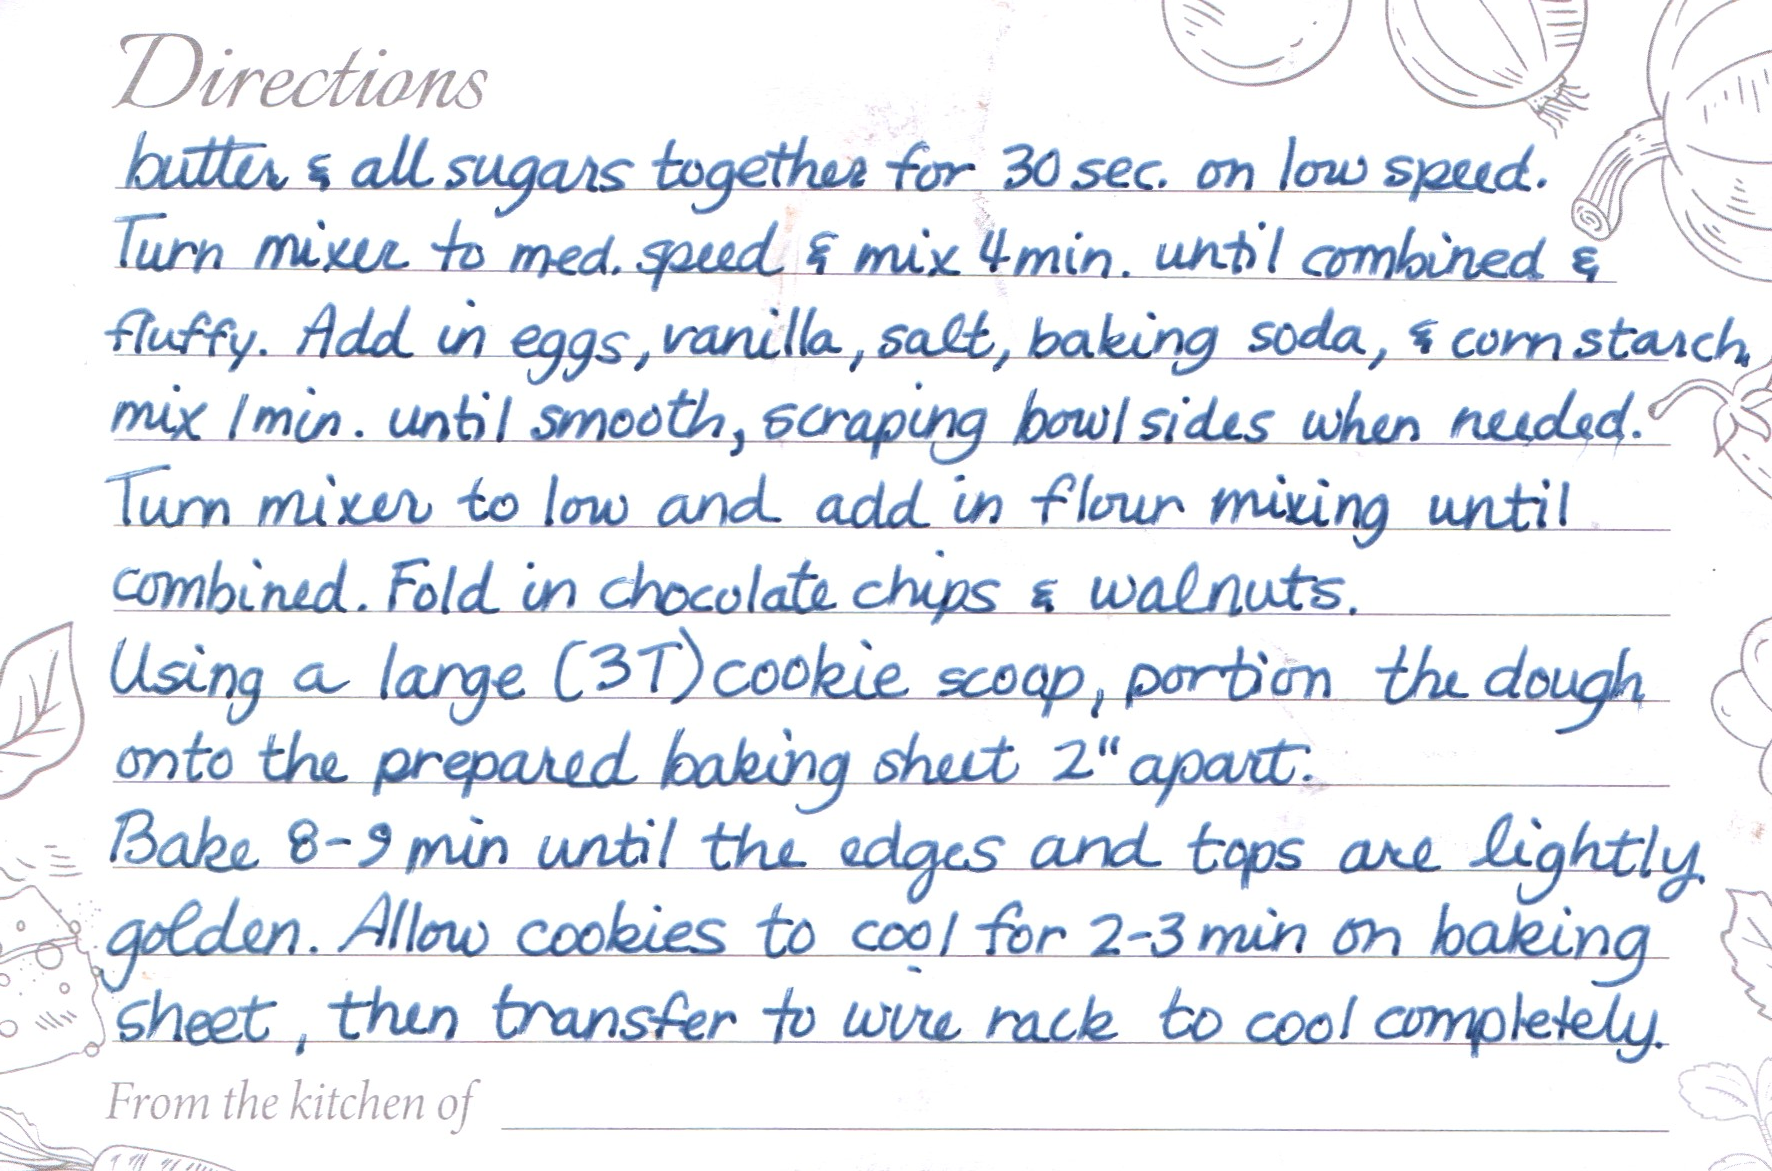 Directions
butter & all sugars together for 30 sec. on low speed.
Turn mixer to med. speed & mix 4 min. until combined &
fluffy. Add in eggs, vanilla, salt, baking soda, & corn starch,
mix 1 min. until smooth, scraping bowl sides when needed.
Turn mixer to low and add in flour mixing until
combined. Fold in chocolate chips & walnuts.
Using a large (3T) cookie scoop, portion the dough
onto the prepared baking sheet 2" apart.
Bake 8-9 min until the edges and tops are lightly
golden. Allow cookies to cool for 2-3 min on baking
sheet, then transfer to wire rack to cool completely.
From the kitchen of